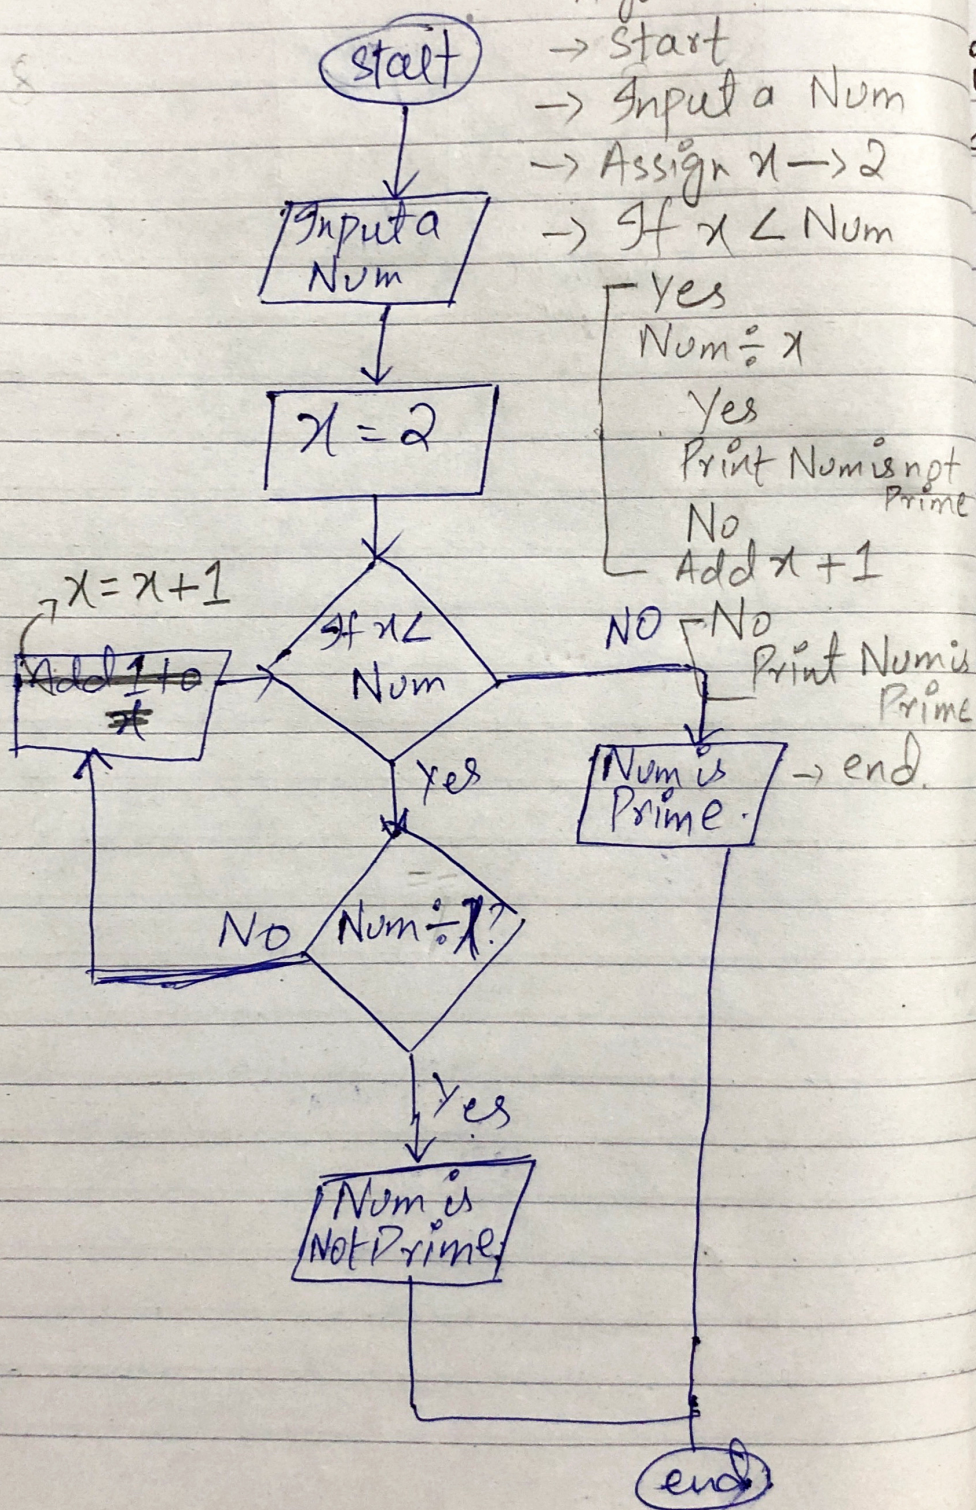 start
Input a
Num
x = 2
If x <
Num
NO
Yes
x = x + 1
Add 1 to
x
Num ÷ x?
No
Yes
Num is
Not Prime
Num is
Prime.
end
→ Start
→ Input a Num
→ Assign x → 2
→ If x < Num
Yes
Num ÷ x
Yes
Print Num is not
Prime
No
Add x + 1
No
Print Num is
Prime
→ end.